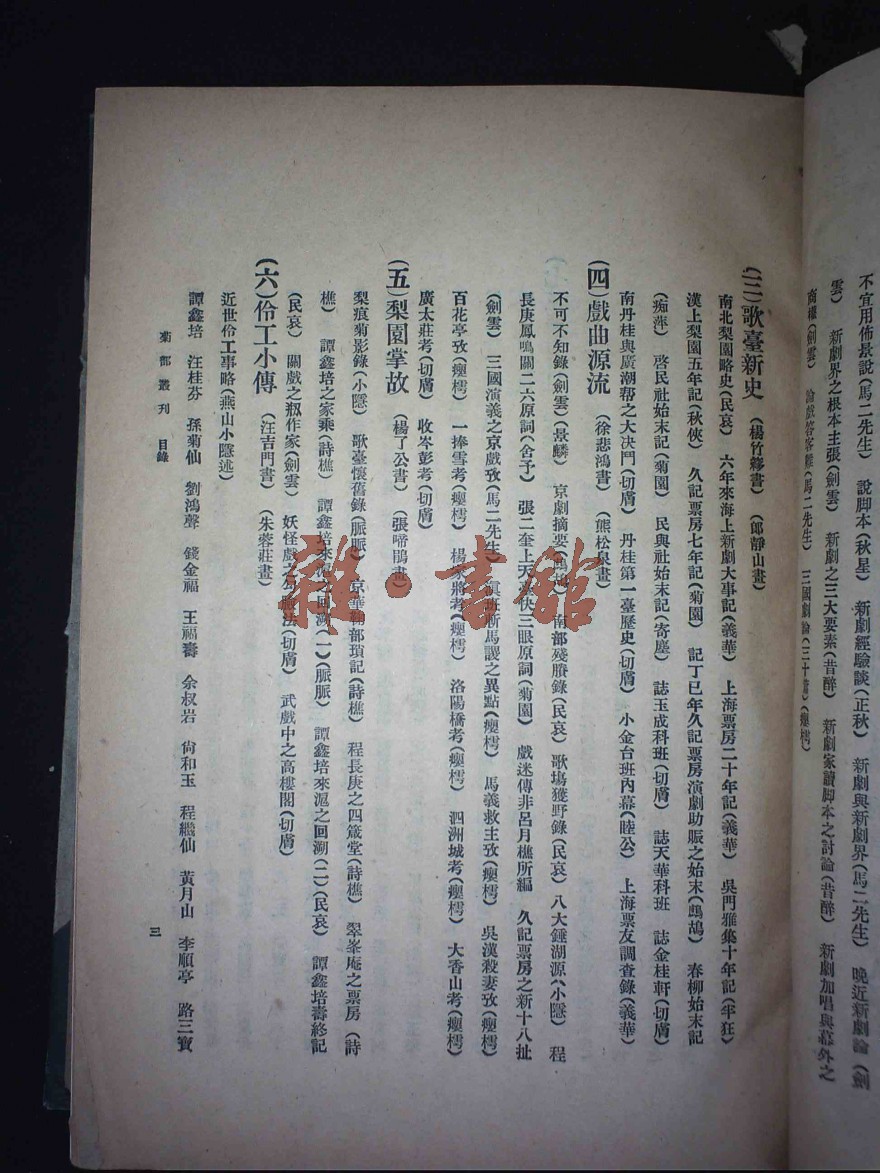 不宜用佈景說(馬二先生) 說脚本(秋星) 新劇經驗談(正秋) 新劇與新劇界(馬二先生) 晚近新劇論(劍
雲) 新劇界之根本主張(劍雲) 新劇之三大要素(昔醉) 新劇家讀脚本之討論(昔醉) 新劇加唱與幕外之
商榷(劍雲) 論戲答客難(馬二先生) 三國劇論
(三)歌臺新史 (楊竹簃書) (郎靜山畫)
南北梨園略史(民哀) 六年來海上新劇大事記(義華) 上海票房二十年記(義華) 吳門雅集十年記(半狂)
漢上梨園五年記(秋俠) 久記票房七年記(菊園) 記丁巳年久記票房演劇助賑之始末(鷓鴣) 春柳始末記
(痴萍) 啓民社始末記(菊園) 民與社始末記(寄塵) 誌玉成科班(切膚) 誌天華科班 誌金桂軒(切膚)
南丹桂與廣潮帮之大决鬥(切膚) 丹桂第一臺歷史(切膚) 小金台班內幕(睦公) 上海票友調查錄(義華)
(四)戲曲源流 (徐悲鴻書) (熊松泉畫)
不可不知錄(劍雲)(景麟) 京劇摘要(鷓鴣) 南部殘賸錄(民哀) 歌場獲野錄(民哀) 八大錘溯源(小隱) 程
長庚鳳鳴關二六原詞(舍予) 張二奎上天台快三眼原詞(菊園) 戲迷傳非呂月樵所編 久記票房之新十八扯
(劍雲) 三國演義之京戲攷(馬二先生) 滇班斬馬謖之異點(癭樗) 馬義救主攷(癭樗) 吳漢殺妻攷(癭樗)
百花亭攷(癭樗) 一捧雪考(癭樗) 楊家將考(癭樗) 洛陽橋考(癭樗) 泗洲城考(癭樗) 大香山考(癭樗)
廣太莊考(切膚) 收岑彭考(切膚)
(五)梨園掌故 (楊了公書) (張啼鵑畫)
梨痕菊影錄(小隱) 歌臺懷舊錄(脈脈) 京華菊部瑣記(詩樵) 程長庚之四箴堂(詩樵) 翠峯庵之票房(詩
樵) 譚鑫培之家乘(詩樵) 譚鑫培來滬之回溯(一)(脈脈) 譚鑫培來滬之回溯(二)(民哀) 譚鑫培壽終記
(民哀) 關戲之瓹作家(劍雲) 妖怪戲之勾臉法(切膚) 武戲中之高樓閣(切膚)
(六)伶工小傳 (汪吉門書) (朱蓉莊畫)
近世伶工事略(燕山小隱述)
譚鑫培 汪桂芬 孫菊仙 劉鴻聲 錢金福 王福壽 余叔岩 尙和玉 程繼仙 黃月山 李順亭 路三寶
菊部叢刊 目錄
三
雜·書館